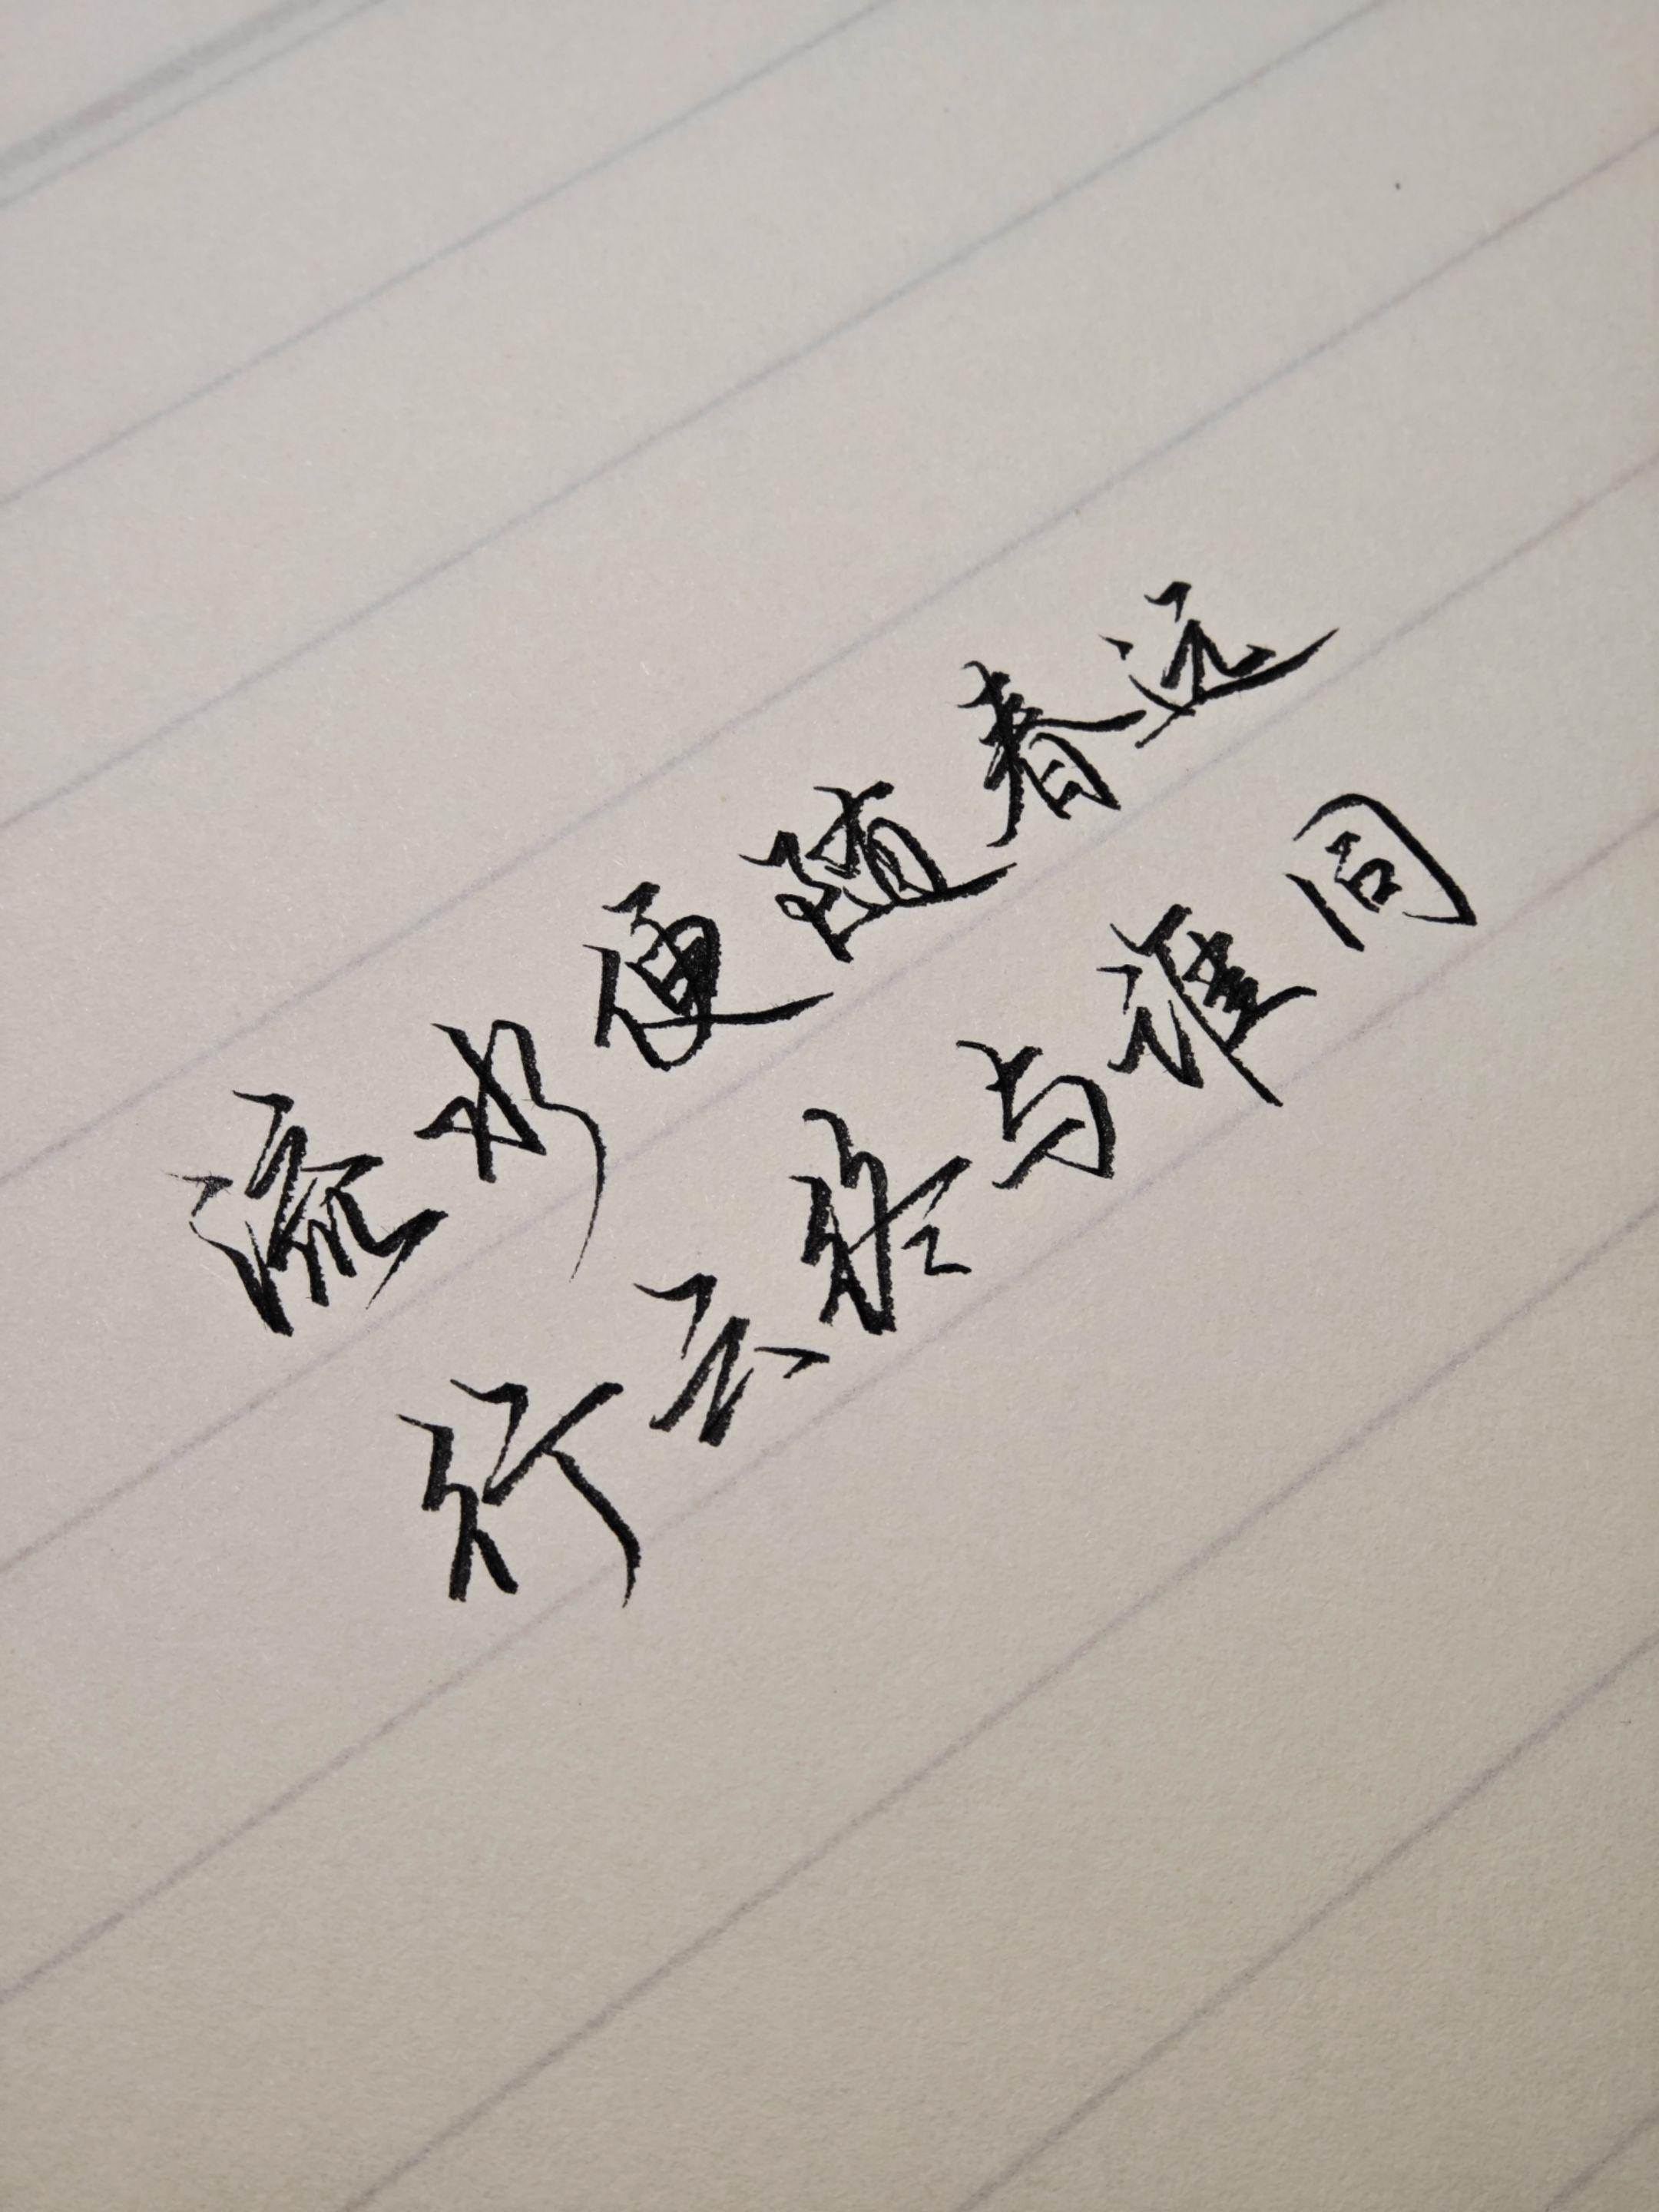 流水便随春远
行云终与谁同